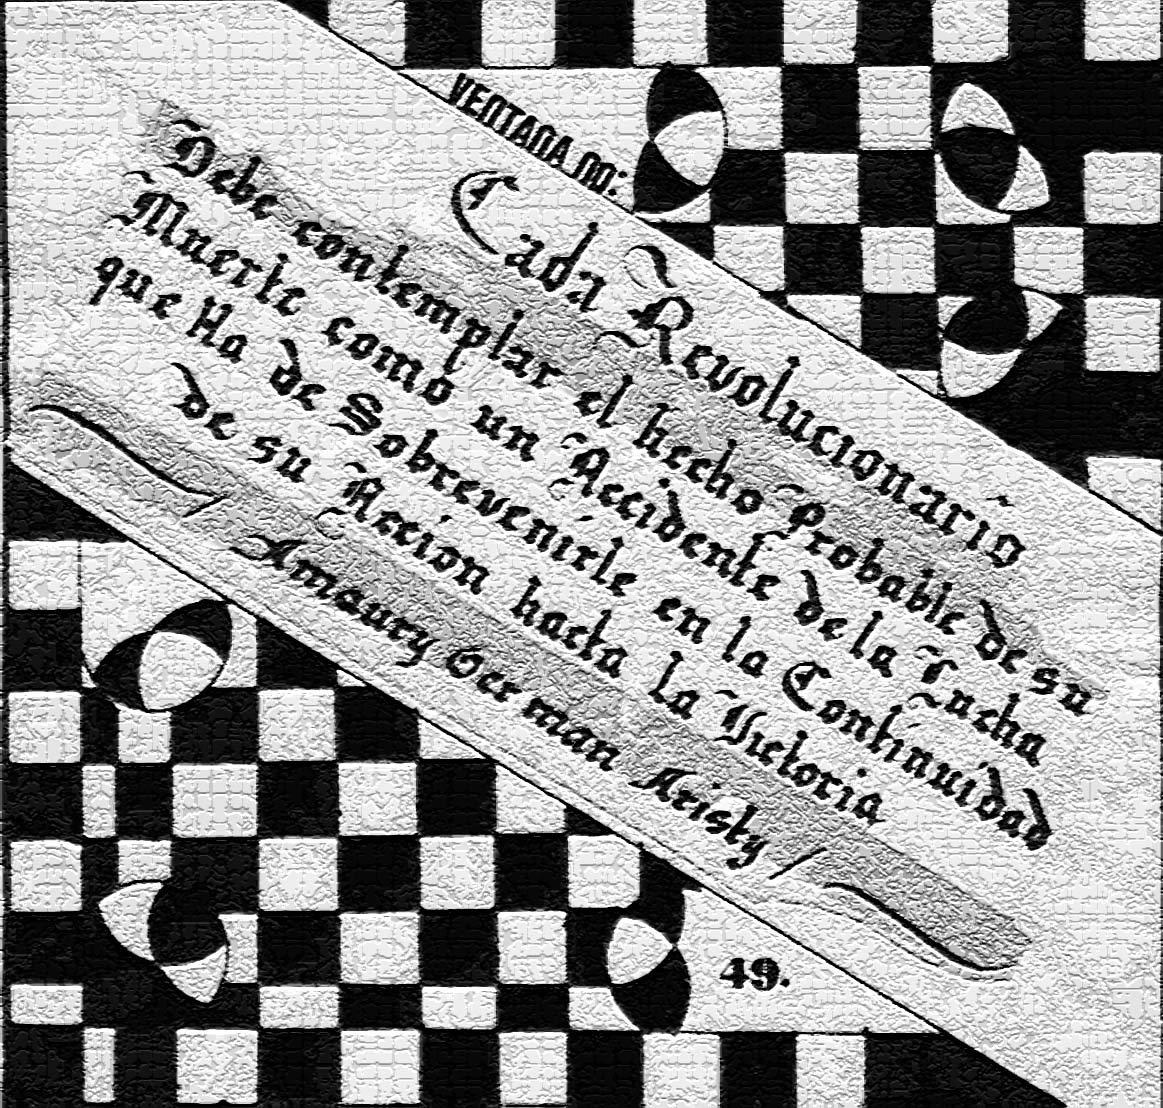 VENTANA no:
Cada Revolucionario
Debe contemplar el hecho Probable de su
Muerte como un Accidente de la Lucha
que Ha de Sobrevenirle en la Continuidad
de su Accion hacia la Victoria
/ Amaury German Aristy /
49.